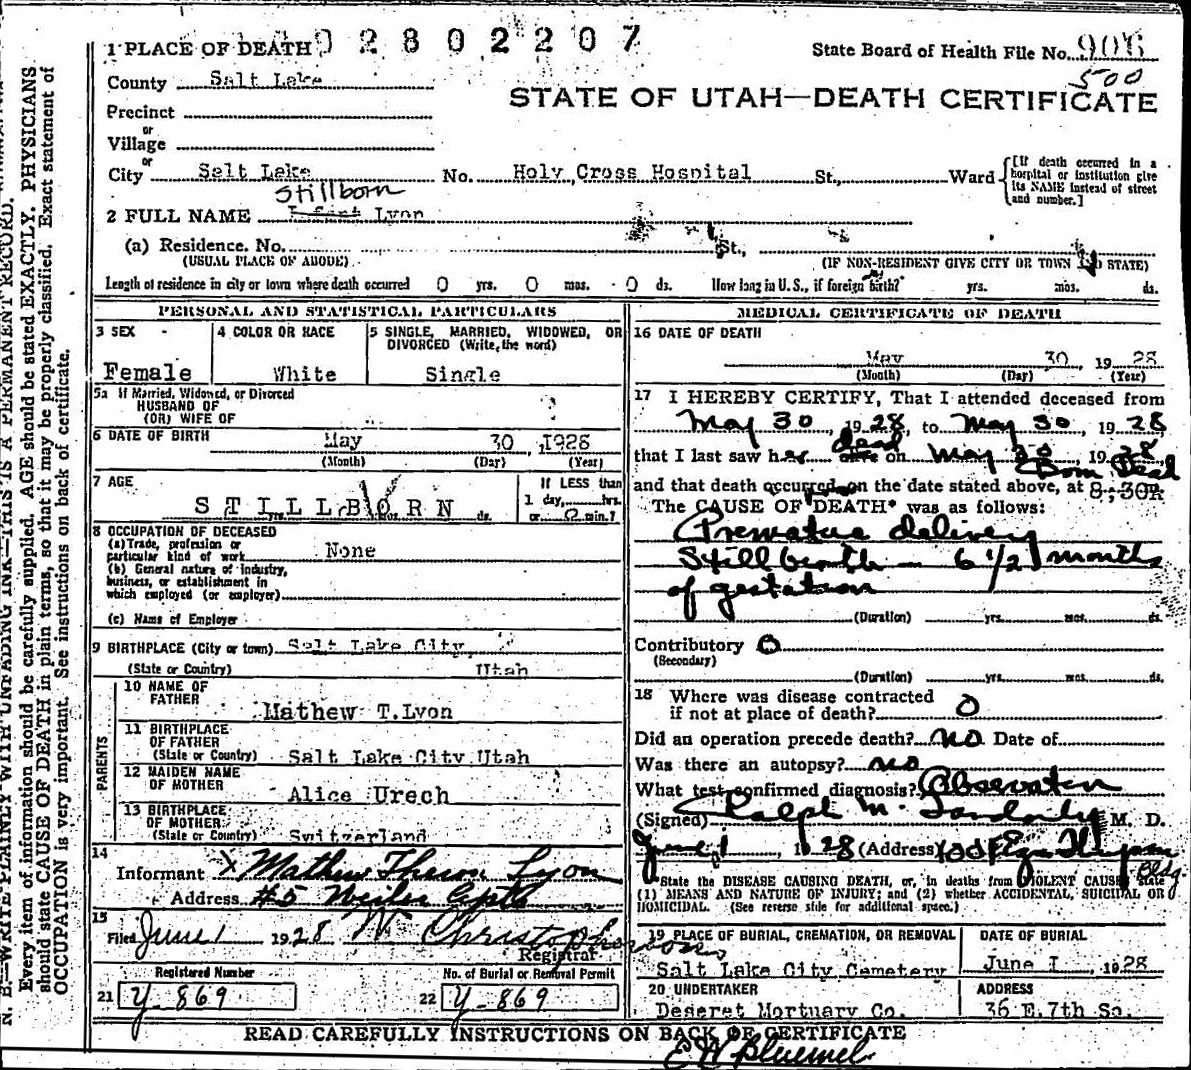 N. B.—WRITE PLAINLY WITH UNFADING INK—THIS IS A PERMANENT RECORD.
Every item of information should be carefully supplied. AGE should be stated EXACTLY. PHYSICIANS
should state CAUSE OF DEATH in plain terms, so that it may be properly classified. Exact statement of
OCCUPATION is very important. See instructions on back of certificate.
0 2 8 0 2 2 0 7
1 PLACE OF DEATH
State Board of Health File No. 906
500
County Salt Lake
STATE OF UTAH—DEATH CERTIFICATE
Precinct
or
Village
or
City Salt Lake No. Holy Cross Hospital St., Ward
[If death occurred in a hospital or institution give its NAME instead of street and number.]
Stillborn
2 FULL NAME Infant Lyon
(a) Residence. No. St.,
(USUAL PLACE OF ABODE) (IF NON-RESIDENT GIVE CITY OR TOWN AND STATE)
Length of residence in city or town where death occurred 0 yrs. 0 mos. 0 ds. How long in U. S., if foreign birth? yrs. mos. ds.
PERSONAL AND STATISTICAL PARTICULARS
3 SEX
Female
4 COLOR OR RACE
White
5 SINGLE, MARRIED, WIDOWED, OR DIVORCED (Write, the word)
Single
5a If Married, Widowed, or Divorced
HUSBAND OF
(OR) WIFE OF
6 DATE OF BIRTH May 30 1928
(Month) (Day) (Year)
7 AGE
STILLBORN
yrs. ds.
If LESS than
1 day, hrs.
or 0 min.?
8 OCCUPATION OF DECEASED
(a) Trade, profession or
particular kind of work None
(b) General nature of industry,
business, or establishment in
which employed (or employer)
(c) Name of Employer
9 BIRTHPLACE (City or town) Salt Lake City,
(State or Country) Utah
PARENTS
10 NAME OF FATHER Mathew T. Lyon
11 BIRTHPLACE OF FATHER
(State or Country) Salt Lake City Utah
12 MAIDEN NAME OF MOTHER Alice Urech
13 BIRTHPLACE OF MOTHER
(State or Country) Switzerland
14
Informant X Mathew Theron Lyon
Address #5 Apts
15
Filed June 1 1928 W Christopherson
Registrar
Registered Number
21 Y-869
No. of Burial or Removal Permit
22 Y-869
MEDICAL CERTIFICATE OF DEATH
16 DATE OF DEATH
May 30 1928
(Month) (Day) (Year)
17 I HEREBY CERTIFY, That I attended deceased from
May 30, 1928, to May 30, 1928,
that I last saw her alive dead on May 30, 1928
Born Dead
and that death occurred on the date stated above, at 8:30A
The CAUSE OF DEATH* was as follows:
Premature delivery
Still birth — 6 1/2 months
of gestation
(Duration) yrs. mos. ds.
Contributory 0
(Secondary)
(Duration) yrs. mos. ds.
18 Where was disease contracted
if not at place of death? 0
Did an operation precede death? no Date of
Was there an autopsy? no
What test confirmed diagnosis? Observation
(Signed) Ralph M. M. D.
June 1, 1928 (Address) Bldg
*State the DISEASE CAUSING DEATH, or, in deaths from VIOLENT CAUSES state
(1) MEANS AND NATURE OF INJURY; and (2) whether ACCIDENTAL, SUICIDAL OR
HOMICIDAL. (See reverse side for additional space.)
19 PLACE OF BURIAL, CREMATION, OR REMOVAL
Salt Lake City Cemetery
DATE OF BURIAL
June I, 1928
20 UNDERTAKER
Deseret Mortuary Co.
ADDRESS
36 E. 7th So.
READ CAREFULLY INSTRUCTIONS ON BACK OF CERTIFICATE